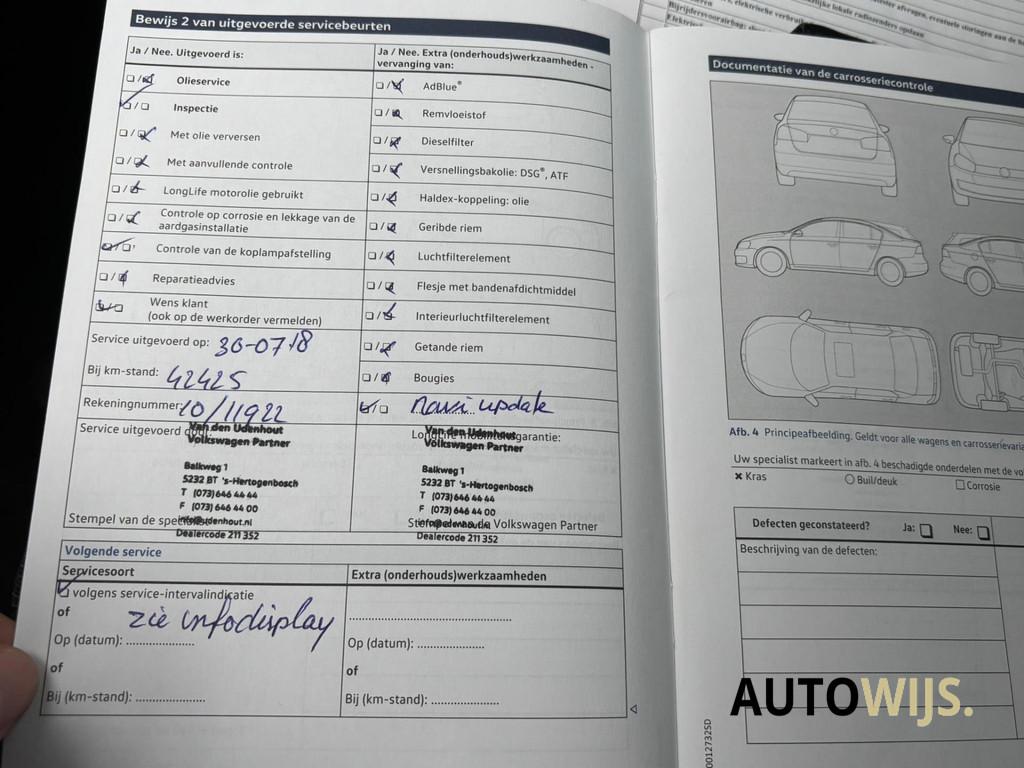 Bewijs 2 van uitgevoerde servicebeurten
Ja / Nee. Uitgevoerd is:
Olieservice
Inspectie
Met olie verversen
Met aanvullende controle
LongLife motorolie gebruikt
Controle op corrosie en lekkage van de
aardgasinstallatie
Controle van de koplampafstelling
Reparatieadvies
Wens klant
(ook op de werkorder vermelden)
Service uitgevoerd op: 30-07-18
Bij km-stand: 42425
Rekeningnummer: 10/11922
Ja / Nee. Extra (onderhouds)werkzaamheden -
vervanging van:
AdBlue®
Remvloeistof
Dieselfilter
Versnellingsbakolie: DSG®, ATF
Haldex-koppeling: olie
Geribde riem
Luchtfilterelement
Flesje met bandenafdichtmiddel
Interieurluchtfilterelement
Getande riem
Bougies
navi update
Service uitgevoerd door:
Van den Udenhout
Volkswagen Partner
Balkweg 1
5232 BT 's-Hertogenbosch
T (073) 646 44 44
F (073) 646 44 00
info@udenhout.nl
Dealercode 211 352
Stempel van de
garantie:
Van den Udenhout
Volkswagen Partner
Balkweg 1
5232 BT 's-Hertogenbosch
T (073) 646 44 44
F (073) 646 44 00
Dealercode 211 352
de Volkswagen Partner
Volgende service
Servicesoort
volgens service-intervalindicatie
of zie infodisplay
Op (datum):
of
Bij (km-stand):
Extra (onderhouds)werkzaamheden
Op (datum):
of
Bij (km-stand):
elektrische
Documentatie van de carrosseriecontrole
Afb. 4 Principeafbeelding. Geldt voor alle wagens en
Uw specialist markeert in afb. 4 beschadigde onderdelen met de
Kras
Buil/deuk
Corrosie
Defecten geconstateerd? Ja: Nee:
Beschrijving van de defecten:
AUTOWIJS.